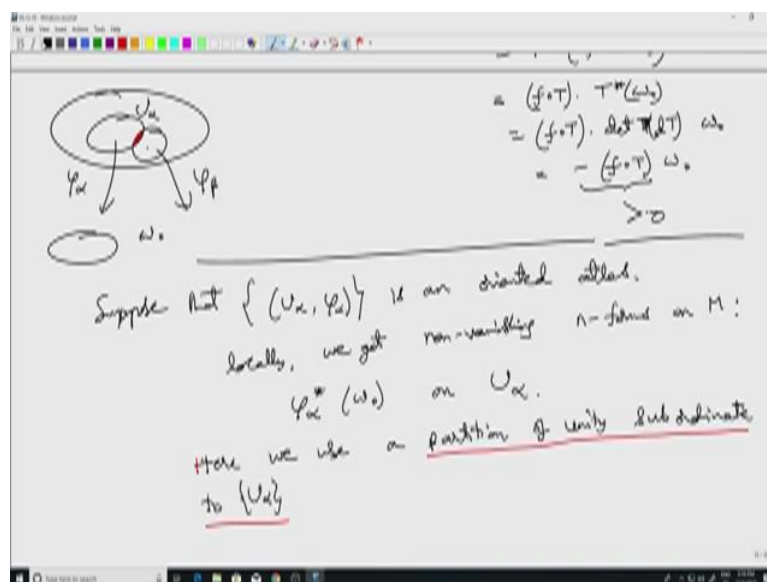 U_α
φ_α
φ_β
ω₀
= (f∘T) · T*(ω₀)
= (f∘T) · det (dT) ω₀
= - (f∘T) ω₀
> 0
Suppose that { (U_α, φ_α) } is an oriented atlas.
locally, we get non-vanishing n-forms on M :
φ_α* (ω₀) on U_α.
Here we use a partition of unity subordinate
to {U_α}